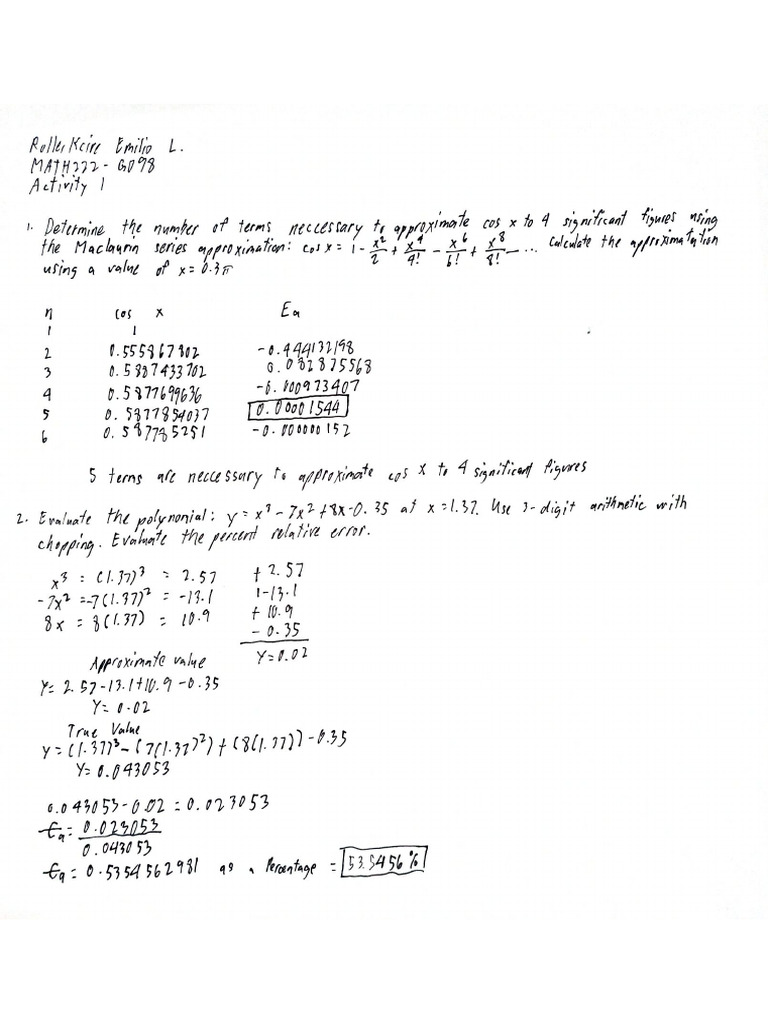 Roller Kcire Emilio L.
MATH222 - G098
Activity 1
1. Determine the number of terms neccessary to approximate cos x to 4 significant figures using
the Maclaurin series approximation: cos x = 1 - x²/2 + x⁴/4! - x⁶/6! + x⁸/8! - ... Calculate the approximatation
using a value of x = 0.3π
n cos x Ea
1 1
2 0.555867802 -0.444132198
3 0.5887433702 0.032875568
4 0.5877699636 -0.000973407
5 0.5877854037 0.00001544
6 0.587785251 -0.000000152
5 terms are neccessary to approximate cos x to 4 significant figures
2. Evaluate the polynonial: y = x³ - 7x² + 8x - 0.35 at x = 1.37. Use 3-digit arithmetic with
chopping. Evaluate the percent relative error.
x³ = (1.37)³ = 2.57 + 2.57
-7x² = -7(1.37)² = -13.1 -13.1
8x = 8(1.37) = 10.9 + 10.9
- 0.35
Y = 0.02
Approximate value
Y = 2.57 - 13.1 + 10.9 - 0.35
Y = 0.02
True Value
Y = (1.37)³ - (7(1.37)²) + (8(1.37)) - 0.35
Y = 0.043053
0.043053 - 0.02 = 0.023053
Ea = 0.023053
0.043053
Ea = 0.5354562981 as a Percentage = 53.5456%